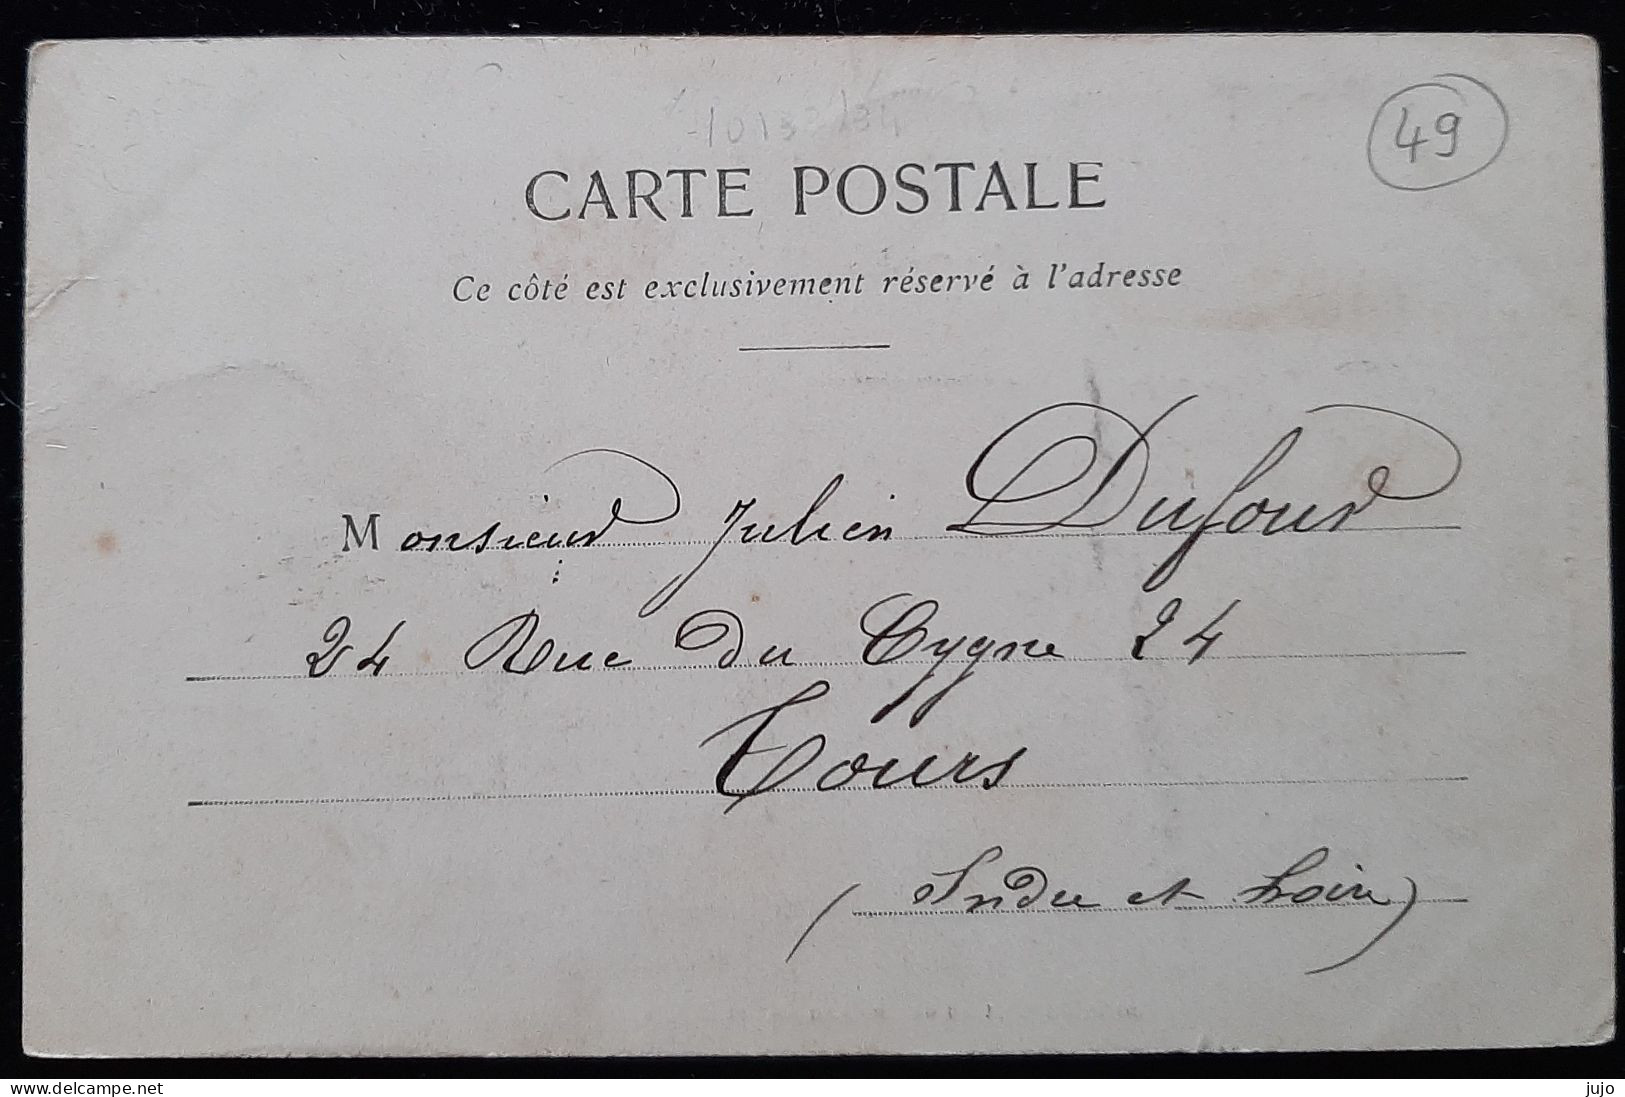 49
CARTE POSTALE
Ce côté est exclusivement réservé à l'adresse
Monsieur Julien Dufour
24 Rue du Cygne 24
Tours
(Indre et Loire)
www.delcampe.net
jujo